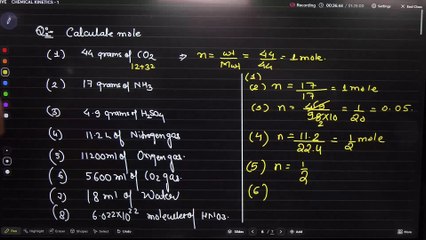 IVE CHEMICAL KINETICS - 1
Q:- Calculate mole
(1) 44 grams of CO2 ⇒ n = wt/Mwt = 44/44 = 1 mole.
12+32
(2) 17 gram of NH3
(3) 4.9 grams of H2SO4
(4) 11.2 L of Nitrogen gas
(5) 11200 ml of Oxygen gas
(6) 5600 ml of CO2 gas
(7) 18 ml of Water
(8) 6.022×10²² molecules of HNO3.
(1)
(2) n = 17/17 = 1 mole
(3) n = 4.9/98×10 = 1/20 = 0.05
2
(4) n = 11.2/22.4 = 1/2 mole
(5) n = 1/2
(6)